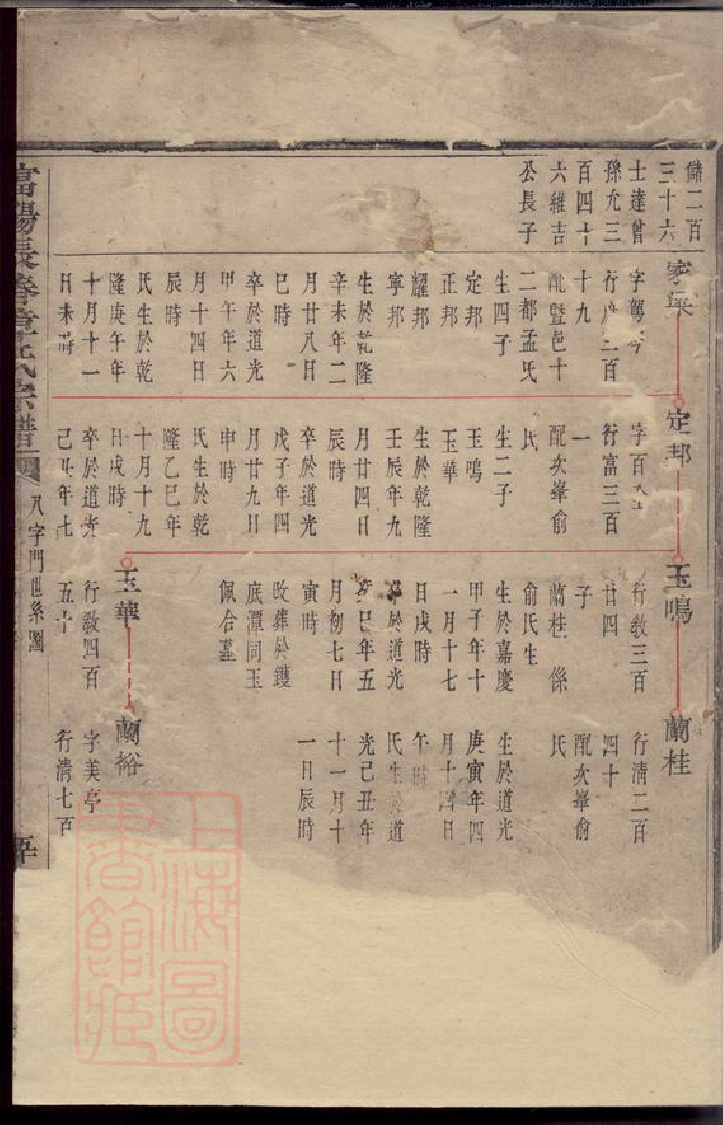 儲二百
三十六
士達曾
孫允三
百四十
六維吉
公長子
家
字駕
行 二百
十九
配暨邑十
二都孟氏
生四子
定邦
正邦
耀邦
寧邦
生於乾隆
辛未年二
月廿八日
巳時
卒於道光
甲午年六
月十四日
辰時
氏生於乾
隆庚午年
十月十一
日未時
定邦
字百
行富三百
一
配次峯俞
氏
生二子
玉鳴
玉華
生於乾隆
壬辰年九
月廿四日
辰時
卒於道光
戊子年四
月廿九日
申時
氏生於乾
隆乙巳年
十月十九
日戌時
卒於道光
己 年七
玉鳴
行教三百
廿四
子
蘭桂 係
俞氏生
生於嘉慶
甲子年十
一月十七
日戌時
卒於道光
癸巳年五
月初七日
寅時
改葬於鑊
底潭同玉
佩合墓
玉華
行教四百
五十
蘭桂
行清二百
四十
配次峯俞
氏
生於道光
庚寅年四
月十四日
午時
氏生於道
光己丑年
十一月十
一日辰時
蘭裕
字美亭
行清七百
富陽長春章氏宗譜
八字門世系圖
上海圖
書館藏